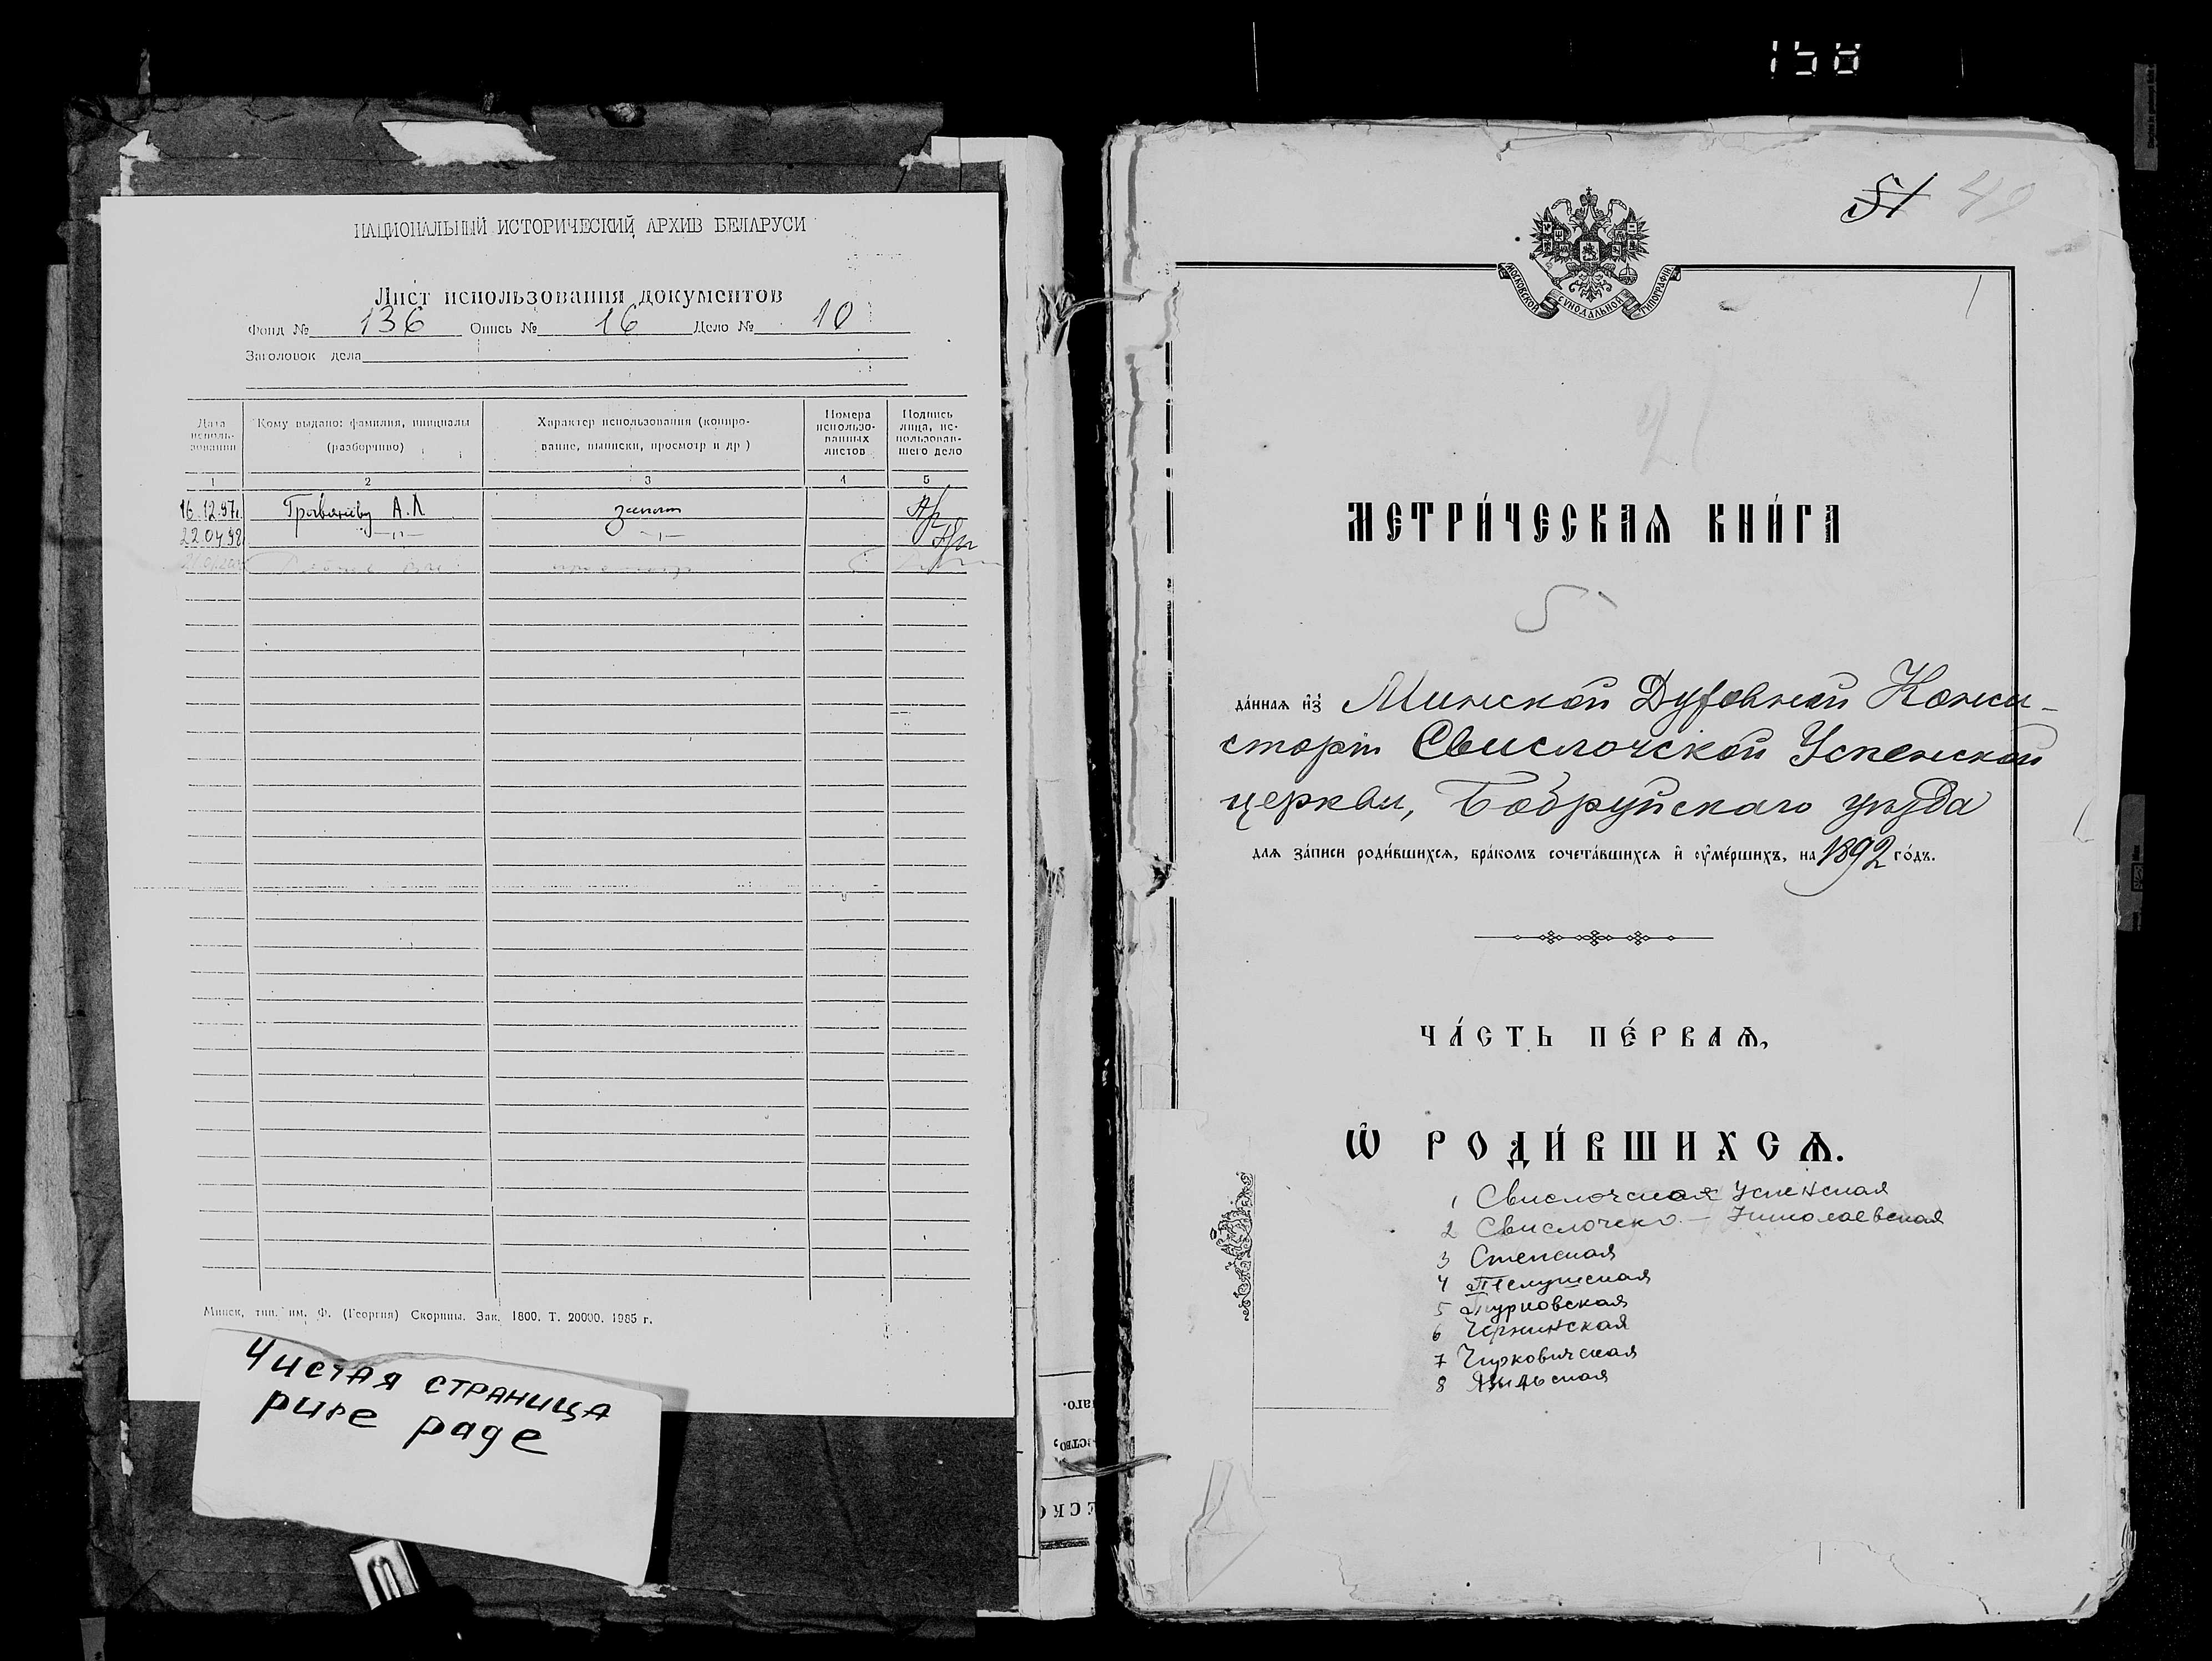 158
НАЦИОНАЛЬНЫЙ ИСТОРИЧЕСКИЙ АРХИВ БЕЛАРУСИ
Лист использования документов
Фонд № 136 Опись № 16 Дело № 10
Заголовок дела
Дата использования
Кому выдано: фамилия, инициалы (разборчиво)
Характер использования (копиро-
вание, выписки, просмотр и др )
Номера
использо-
ванных
листов
Подпись
лица, ис-
пользовав-
шего дело
1 2 3 4 5
16.12.97г. А.Л
22.04.98 -"- -"-
Минск, тип. им. Ф. (Георгия) Скорины. Зак. 1800. Т. 20000. 1985 г.
Чистая страница
pure page
51 49
МОСКОВСКОЙ СѴНОДАЛЬНОЙ ТИПОГРАФІИ
1
21
МЕТРИ́ЧЕСКАѦ КНИ́ГА
5
да́ннаѧ и҆з̾ Минской Духовной Конси-
сторіи Свислочской Успенской
церкви, Бобруйскаго уѣзда
длѧ за́писи роди́вшихсѧ, бра́комъ сочета́вшихсѧ и҆ ᲂу҆ме́ршихъ, на 1892 го́дъ.
ЧА́СТЬ ПЕ́РВАѦ,
Ѽ РОДИ́ВШИХСѦ.
1 Свислочская Успенская
2 Свислочско - Николаевская
3 Степская
4 Телушская
5 Турковская
6 Чернинская
7 Чирковичская
8 Языльская